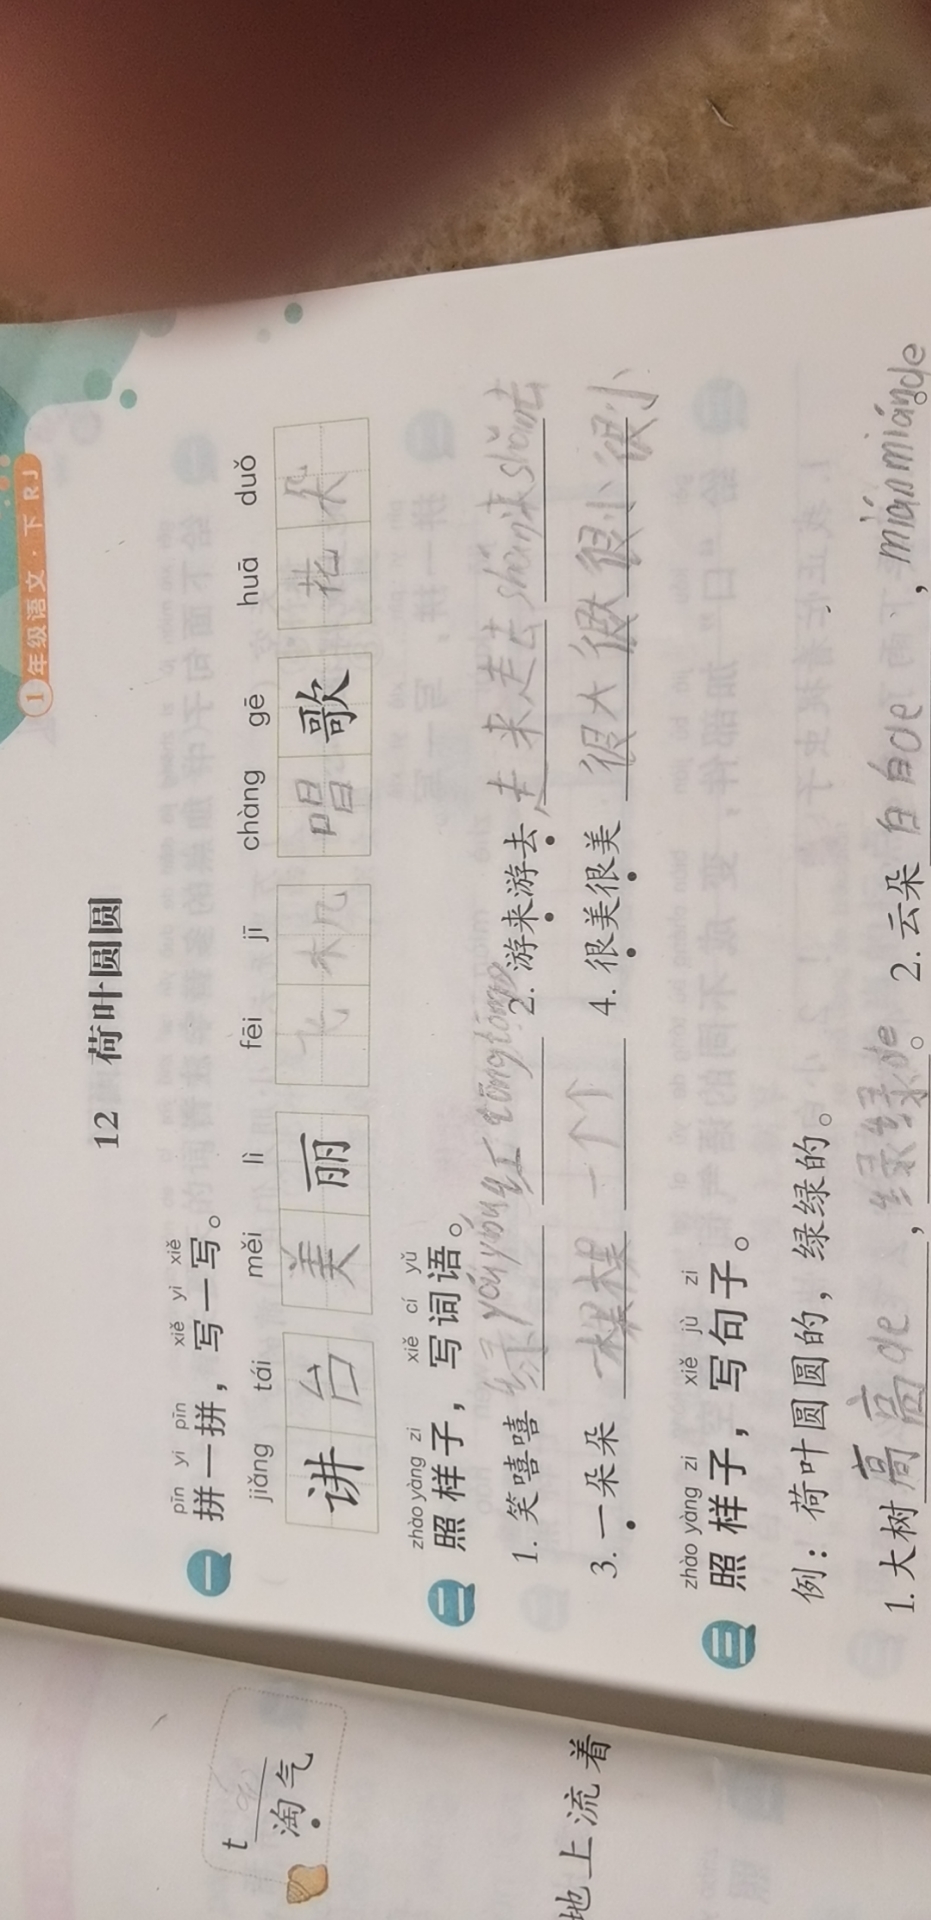 1年级语文·下 RJ
12 荷叶圆圆
pīn yi pīn xiě yi xiě
一 拼一拼，写一写。
jiǎng tái měi lì fēi jī chàng gē huā duǒ
讲台 美丽 飞机 唱歌 花朵
zhào yàng zi xiě cí yǔ
二 照样子，写词语。
1. 笑嘻嘻 绿yóuyóu 红tōngtōng 2. 游来游去 走来走去 shǎn来shǎn去
3. 一朵朵 一棵棵 一个个 4. 很美很美 很大很大 很小很小
zhào yàng zi xiě jù zi
三 照样子，写句子。
例：荷叶圆圆的，绿绿的。
1. 大树高高de，绿绿de。 2. 云朵白白de，miánmiánde
t
淘气
地上流着